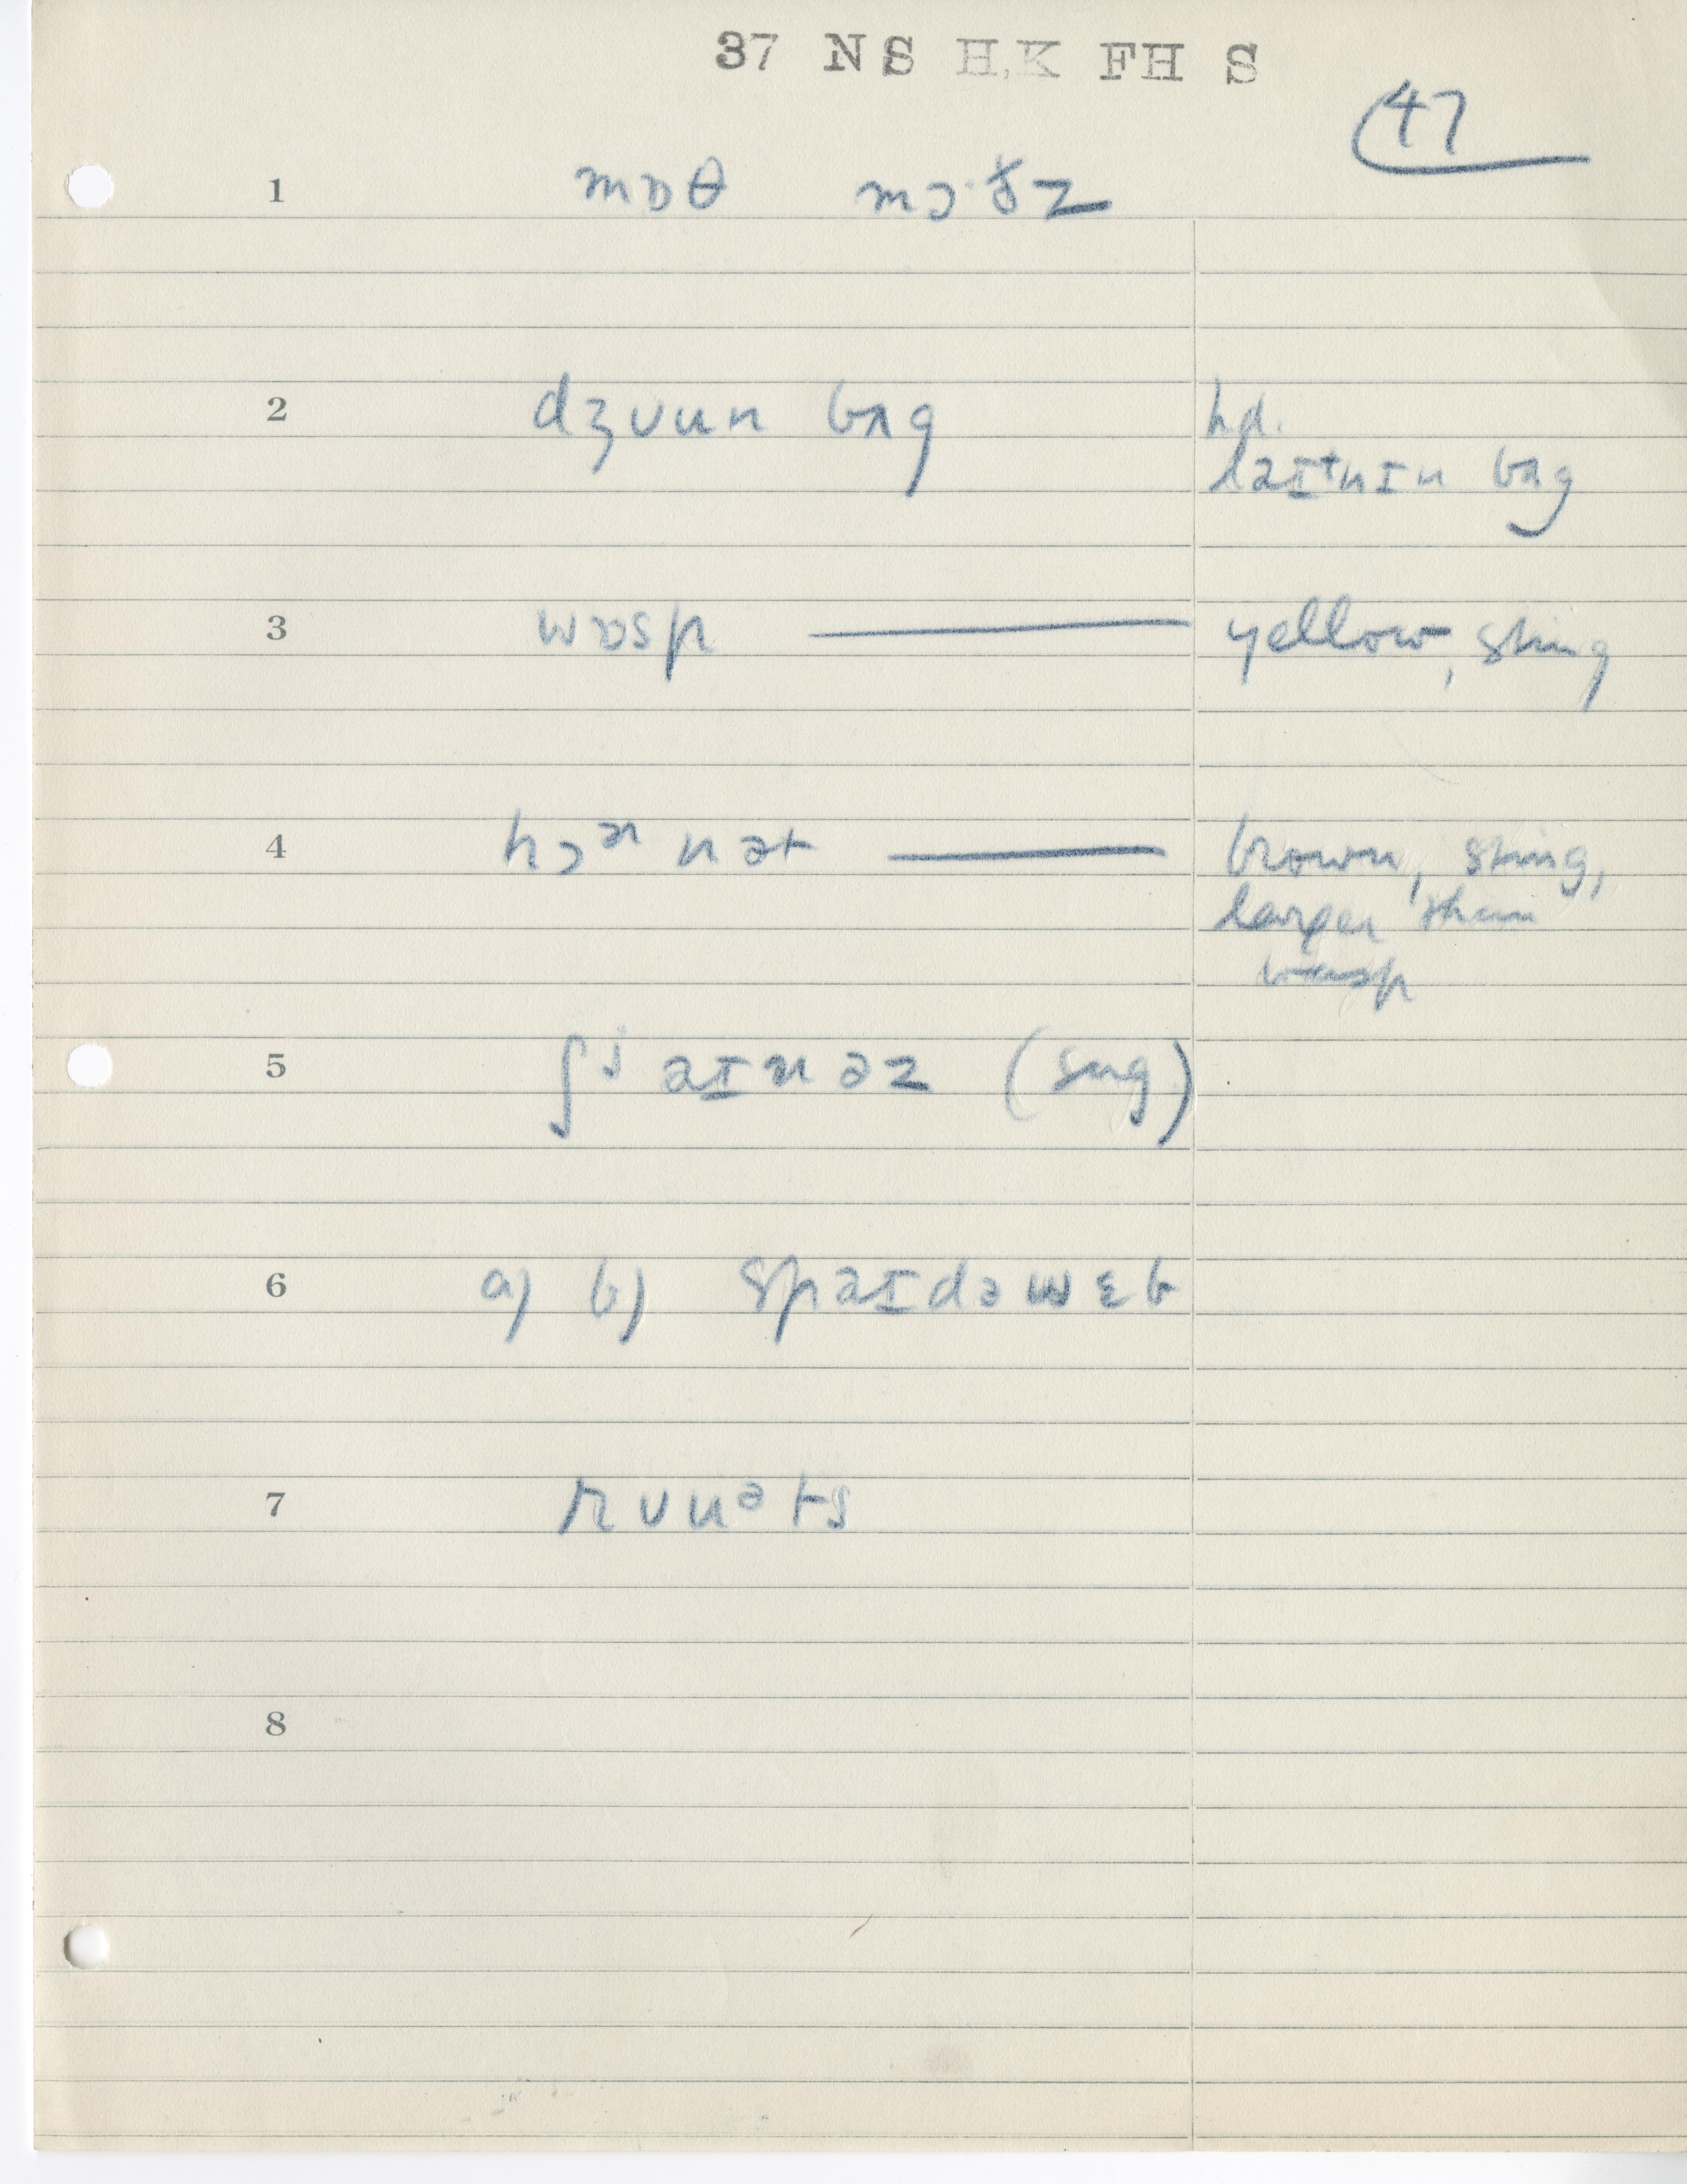 37 NS H,K FH S
47
1 mɒθ mɔ·ðz
2 dʒuun bʌg hd.
laɪtnɪn bʌg
3 wɒsp — yellow, sting
4 hɔᵊʳnət — brown, sting,
larger than
wasp
5 ʃʲaɪnəz (sng)
6 a) b) spaɪdəwɛb
7 ruuᵊts
8